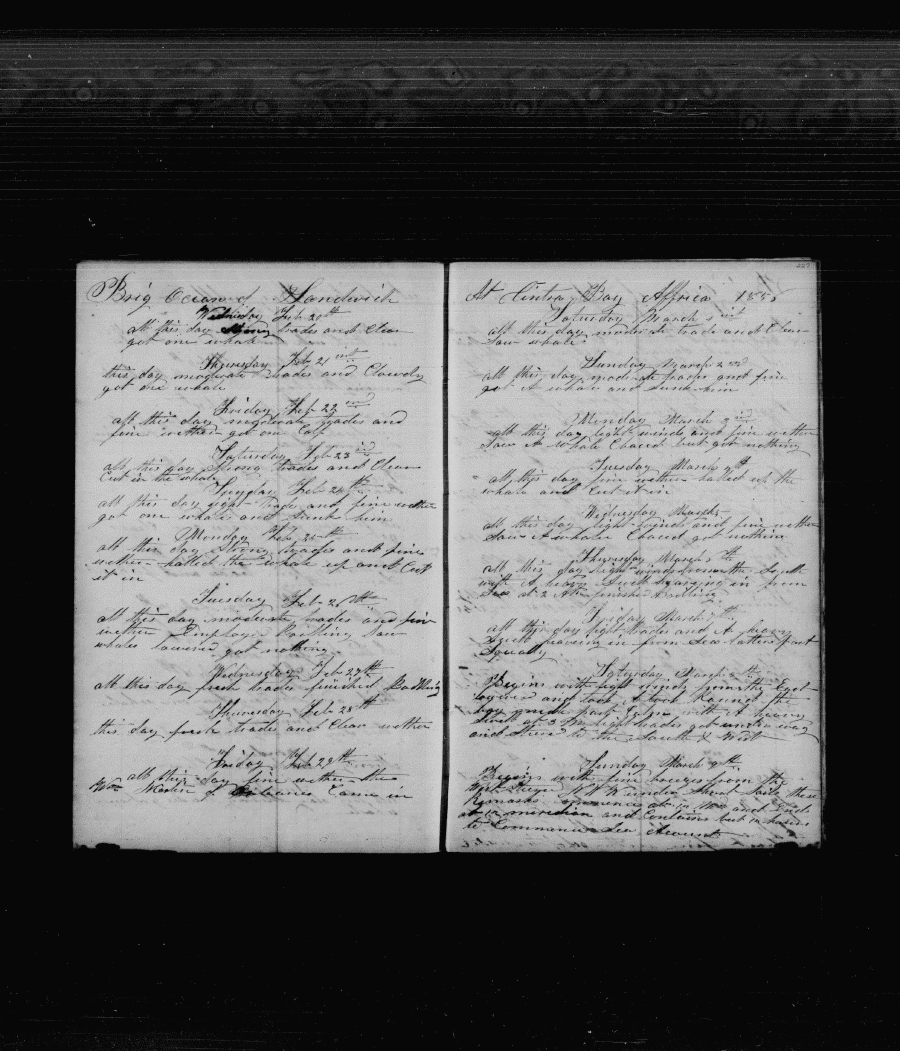 Brig Ocean of Sandwich
Wednesday Feb 20th
all this day Strong trades and Clear
got one whale
Thursday Feb 21
this day moderate trades and Clowdy
got one whale
Friday Feb 22
all this day moderate trades and
fine wether got one Calf
Saturday Feb 23
all this day Strong trades and Clear
Cut in the whale
Sunday Feb 24th
all this day light trades and fine wether
got one whale and Sunk him
Monday Feb 25th
all this day Strong trades and fine
wether halled the whale up and Cut
it in
Tuesday Feb 26th
all this day moderate trades and fine
wether Employe Boilling Saw
whales lowered got nothing
Wednesday Feb 27th
all this day fresh trades finished Boilling
Thursday Feb 28th
this day fresh trades and Clear wether
Friday Feb 29th
all this day fine wether the
Came in
At Cintra Bay Affrica 185
Saturday March 1st
all this day moderate trade and Clear
Saw whales
Sunday March 2nd
all this day moderate trades and fine
got A whale and Sunk him
Monday March 3rd
all this day light winds and fine wether
Saw A whale Chaced but got nothing
Tuesday March 4th
all this day fine wether halled up the
whale and Cut it in
Wednesday March
all this day light winds and fine wether
Saw A whale Chaced got nothing
Thursday March
all this day light winds from the South
with A heavy Swell heaving in from
Sea at 2 AM finished Boilling
Friday March 7th
all this day light trades and A heavy
Swell heaving in from Sea latter part
Squally
Saturday March 8th
Begins with light winds from the East
and took A look Round the
bay with A heavy
Swell at 3 PM light trades got underway
and Steered to the South & West
Sunday March 9th
Begins with fine breezes from the
West Steeing N W under Short Sail these
Remarks commences at and Ends
at meridian and Contains but 12 hours
to Commance Sea Account